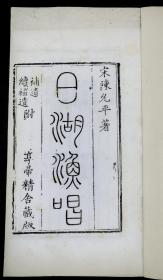 宋陳允平著
日湖漁唱
補遺
續補遺
附
尊帝精舍藏版